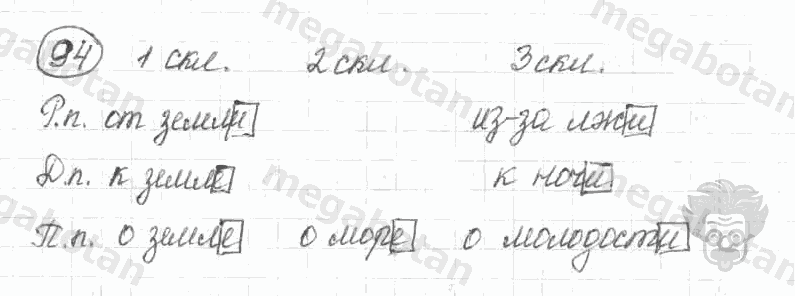 94 1 скл. 2 скл. 3 скл.
Р.п. от земли из-за лжи
Д.п. к земле к ночи
П.п. о земле о море о молодости
megabotan